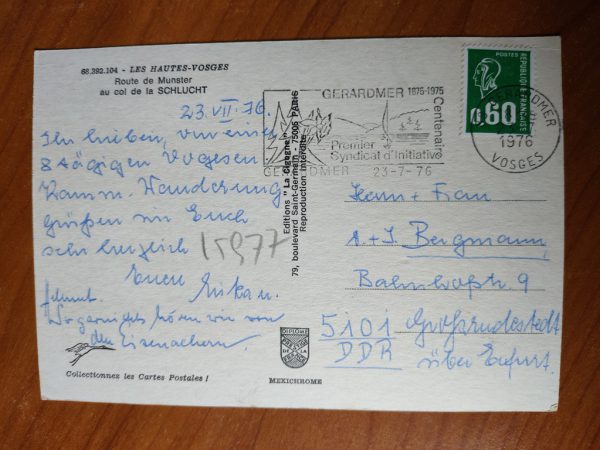 68.392.104 - LES HAUTES-VOSGES
Route de Munster
au col de la SCHLUCHT
23.VII.76.
Ihr Lieben, von einer
8 tägigen Vogesen
Kamm-Wanderung
grüßen wir Euch
sehr herzlich
Euch
Helmut.
hören wir von
den Eisenachern.
15977
Collectionnez les Cartes Postales !
Editions "La Cigogne"
79, boulevard Saint-Germain - 75006 PARIS
Reproduction interdite
DIPLOME
PRESTIGE
DE LA
FRANCE
MEXICHROME
GERARDMER 1876-1975
Centenaire
Premier
Syndicat d'Initiative
GERARDMER 23-7-76
POSTES
REPUBLIQUE FRANÇAISE
0,60
GERARDMER
1976
VOSGES
Herrn + Frau
A.+I. Bergmann
Bahnhofstr. 9
5101 Großrudestedt
DDR über Erfurt.